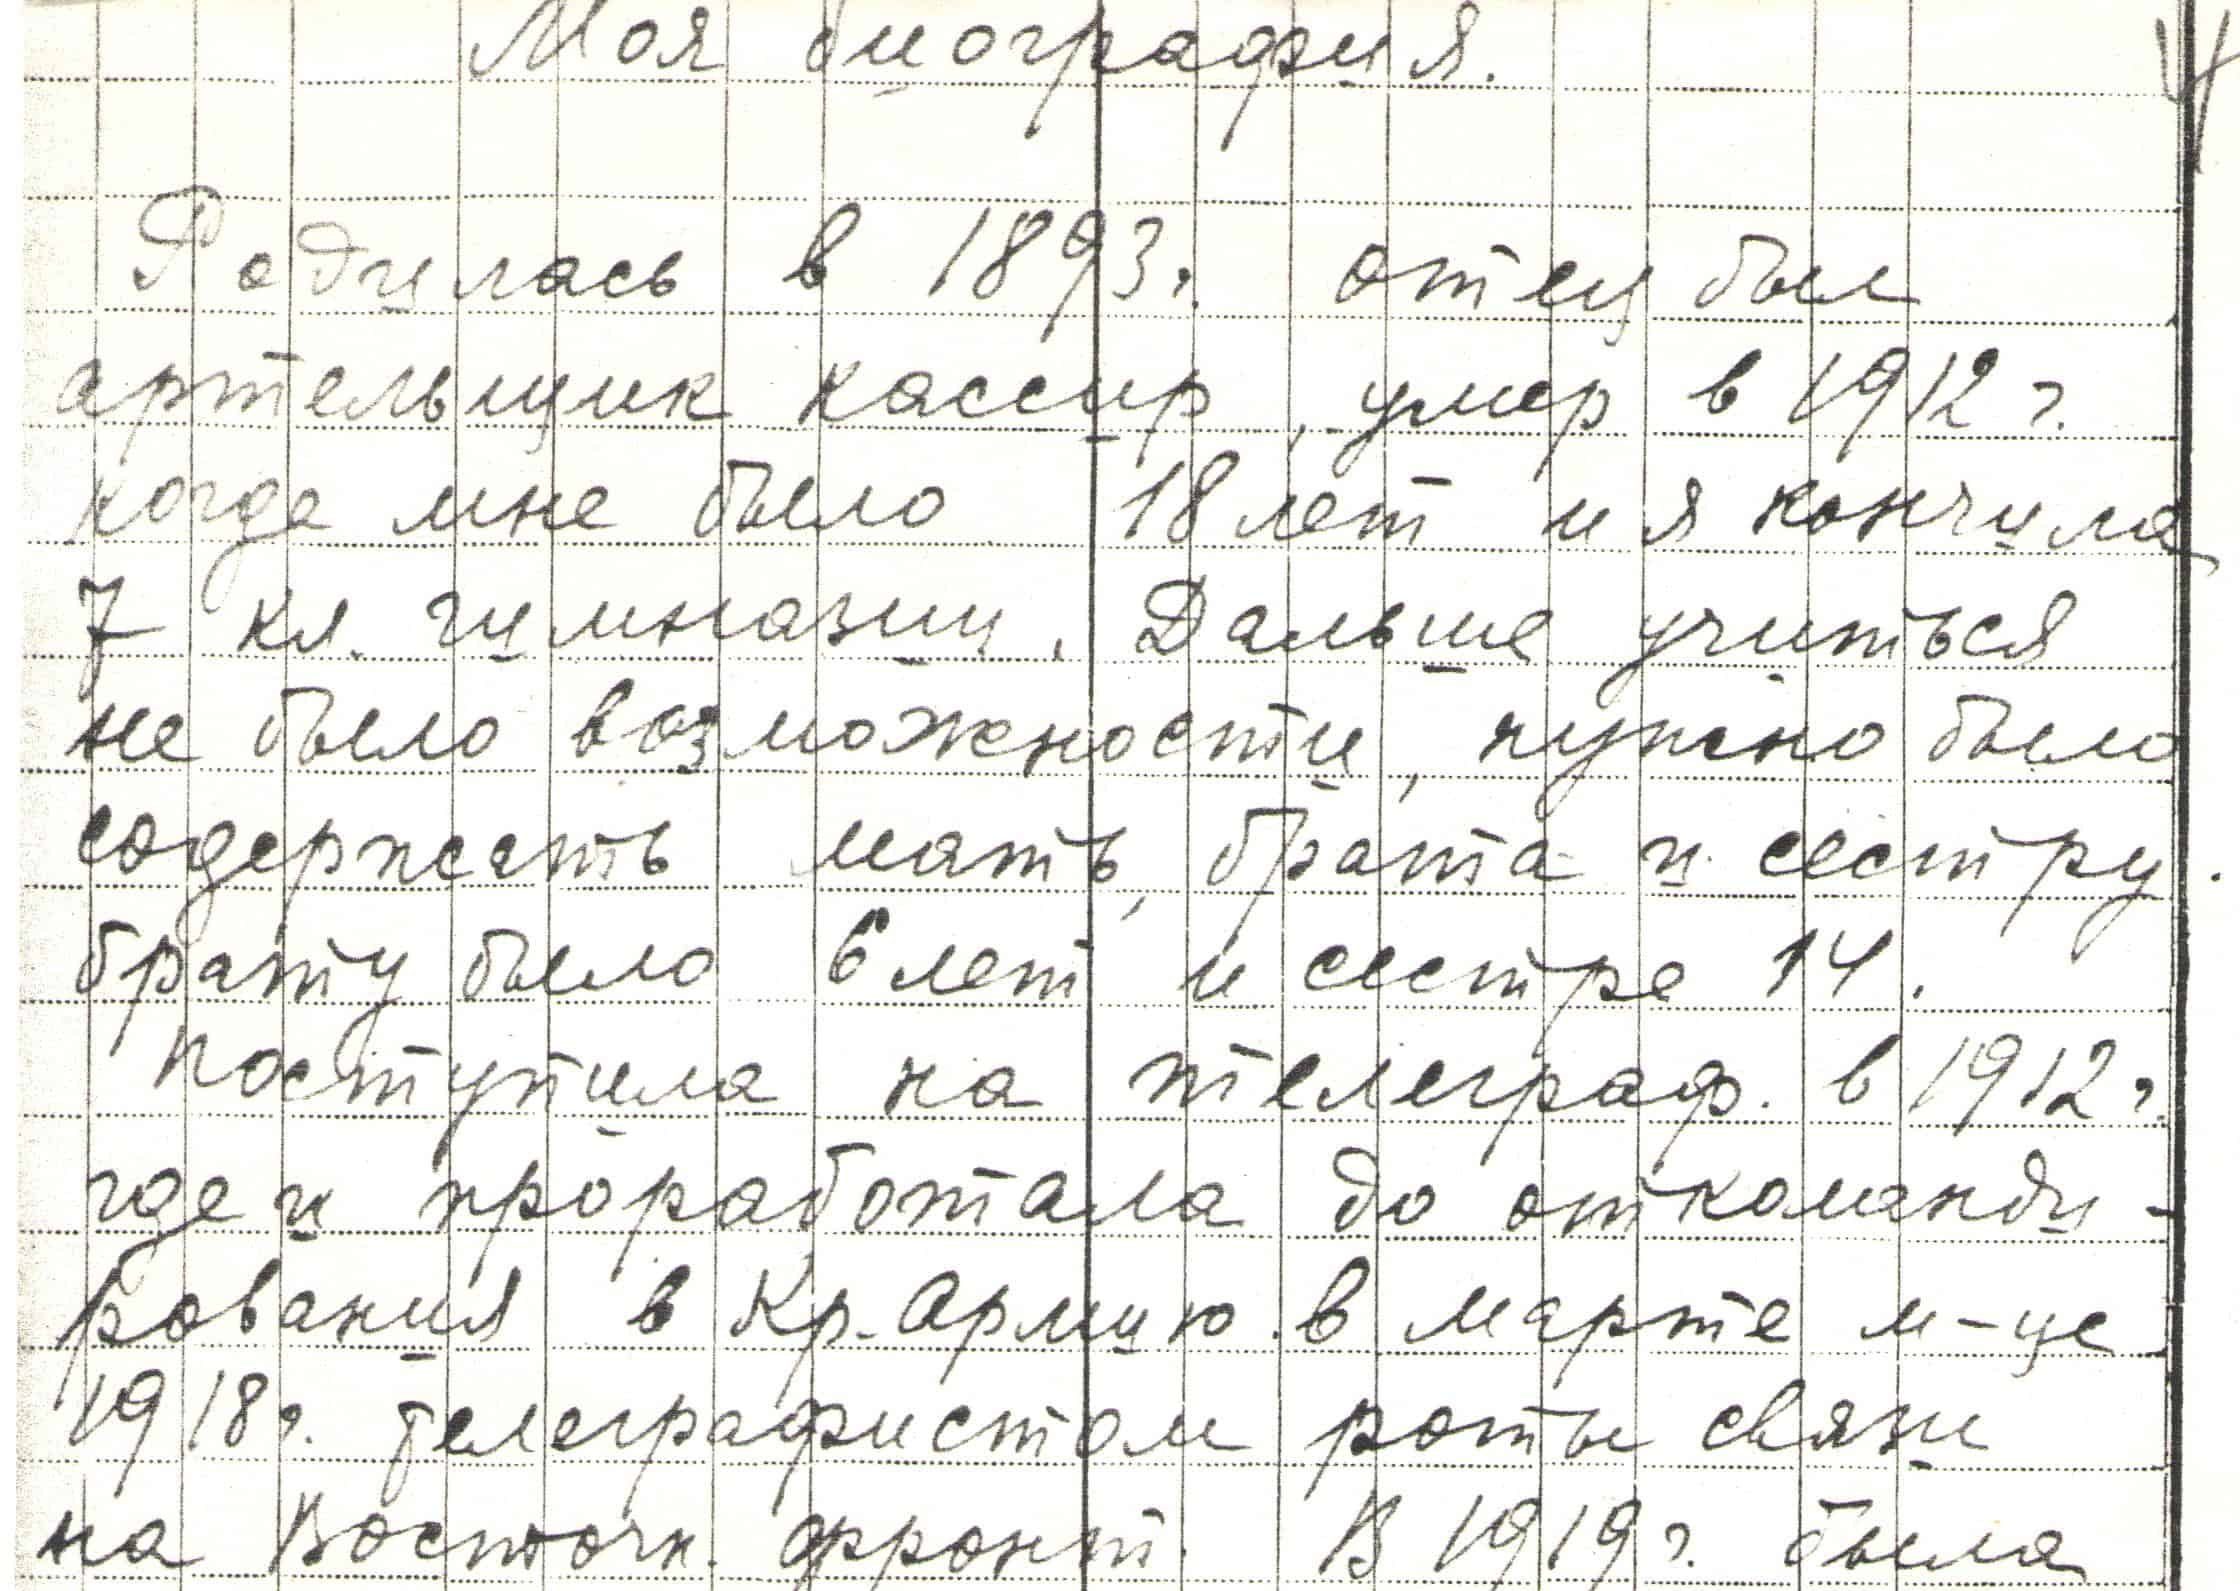 Моя биография.
Родилась в 1893г. отец был
артельщик кассир, умер в 1912 г.
когда мне было 18 лет и я кончила
7 кл. гимназии. Дальше учиться
не было возможности, нужно было
содержать мать, брата и сестру.
брату было 6 лет и сестре 14.
Поступила на телеграф. в 1912 г.
где и проработала до откоманди-
рования в Кр. Армию. в марте м-це
1918г. телеграфистом роты связи
на Восточн. фронт. В 1919 г. была